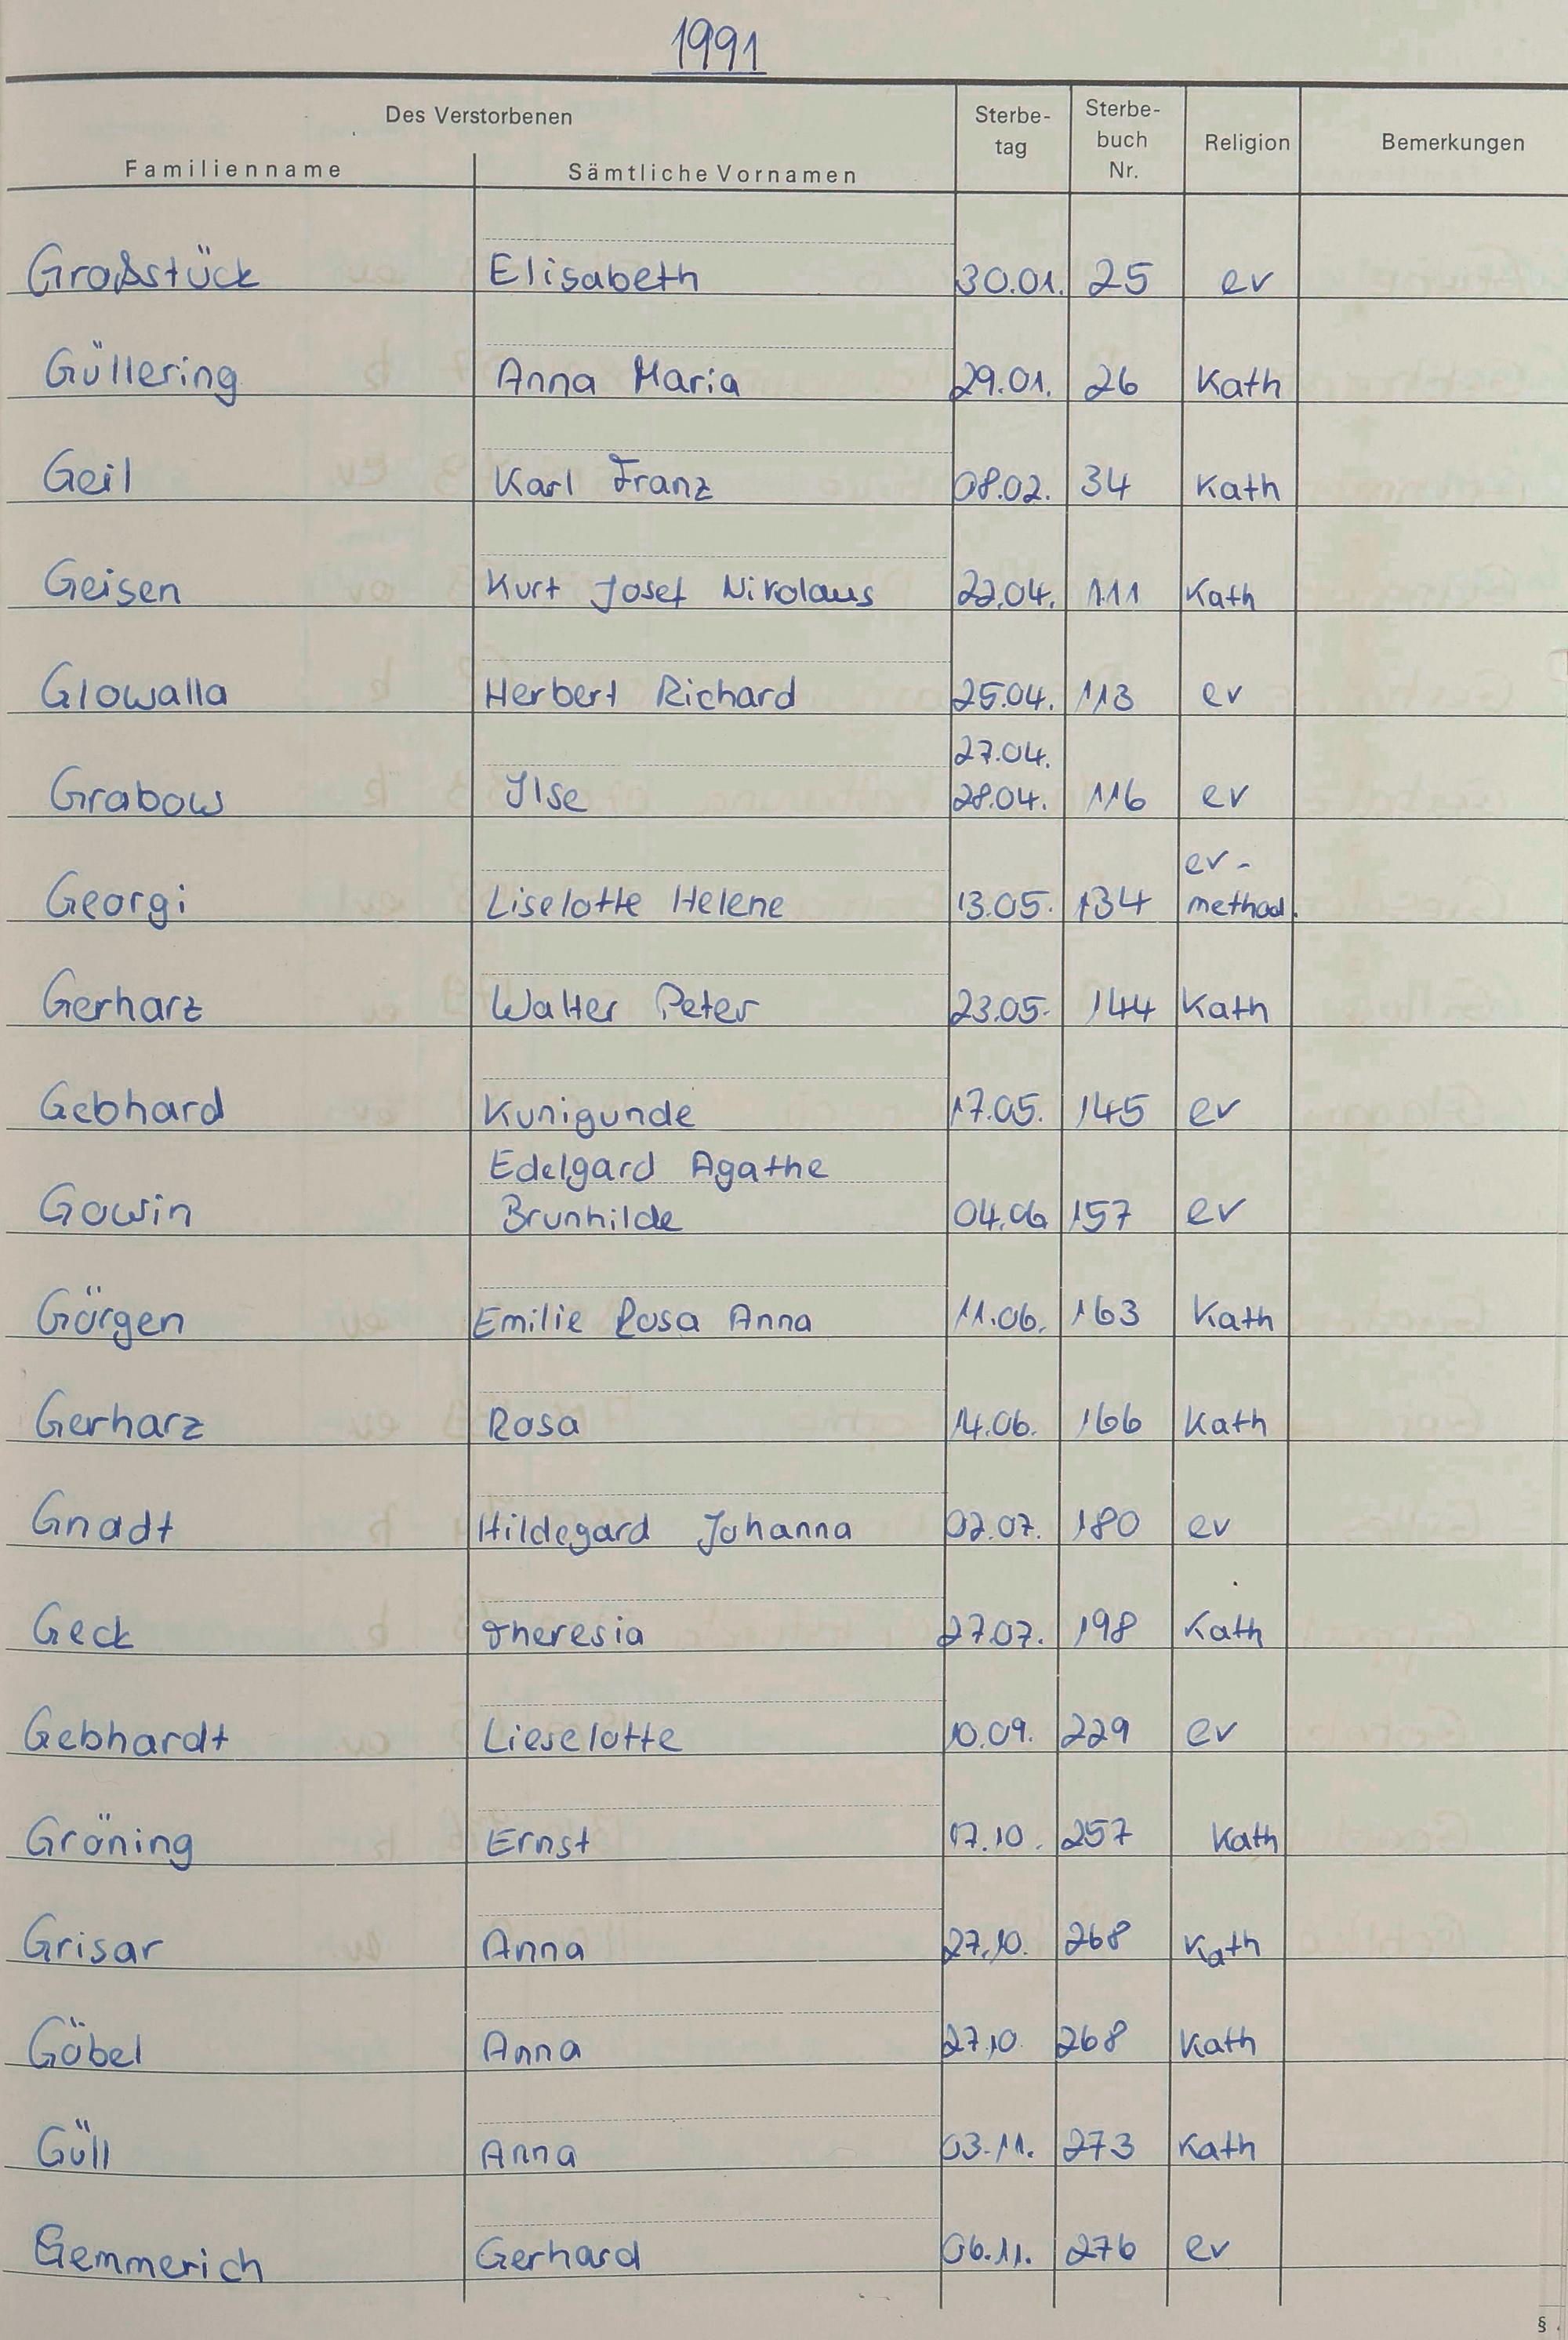 1991
Des Verstorbenen
Familienname Sämtliche Vornamen Sterbe-tag Sterbe-buch Nr. Religion Bemerkungen
Großstück Elisabeth 30.01. 25 ev
Güllering Anna Maria 29.01. 26 Kath
Geil Karl Franz 08.02. 34 Kath
Geisen Kurt Josef Nikolaus 22.04. 111 Kath
Glowalla Herbert Richard 25.04. 113 ev
27.04.
Grabow Ilse 28.04. 116 ev
ev-
Georgi Liselotte Helene 13.05. 134 method.
Gerharz Walter Peter 23.05. 144 Kath
Gebhard Kunigunde 17.05. 145 ev
Edelgard Agathe
Gowin Brunhilde 04.06 157 ev
Görgen Emilie Rosa Anna 11.06. 163 Kath
Gerharz Rosa 14.06. 166 Kath
Gnadt Hildegard Johanna 02.07. 180 ev
Geck Theresia 27.07. 198 Kath
Gebhardt Lieselotte 10.09. 229 ev
Gröning Ernst 17.10. 257 Kath
Grisar Anna 27.10. 268 Kath
Göbel Anna 27.10. 268 Kath
Güll Anna 03.11. 273 Kath
Gemmerich Gerhard 06.11. 276 ev
§